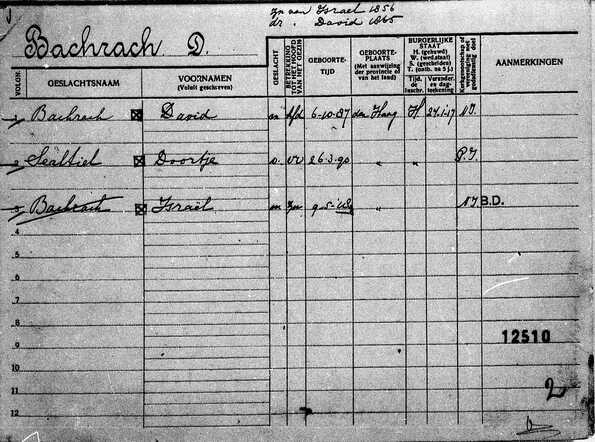 zn van Israël 1856
dr. " David 1865
Bachrach D.
VOLGN. GESLACHTSNAAM VOORNAMEN (Voluit geschreven) GESLACHT BETREKKING TOT HET HOOFD VAN HET GEZIN GEBOORTE-TIJD GEBOORTE-PLAATS (Met aanwijzing der provincie of van het land) BURGERLIJKE STAAT H. (gehuwd) W. (wed.staat) S. (gescheiden) T. (ontb. na 5 j.) Tijd. de inschr. Verander. en dag-teekening Kerkgenootschap of godsdienstig deel AANMERKINGEN
1 Bachrach David m hfd 6-10-87 den Haag H 24-1-17 N.I.
2 Sealtiel Doortje v. vr 26-3-90 " " P.I.
3 Bachrach Israël m zn 9-5- " N.I B.D.
4
5
6
7
8
9
12510
10
11 2
12